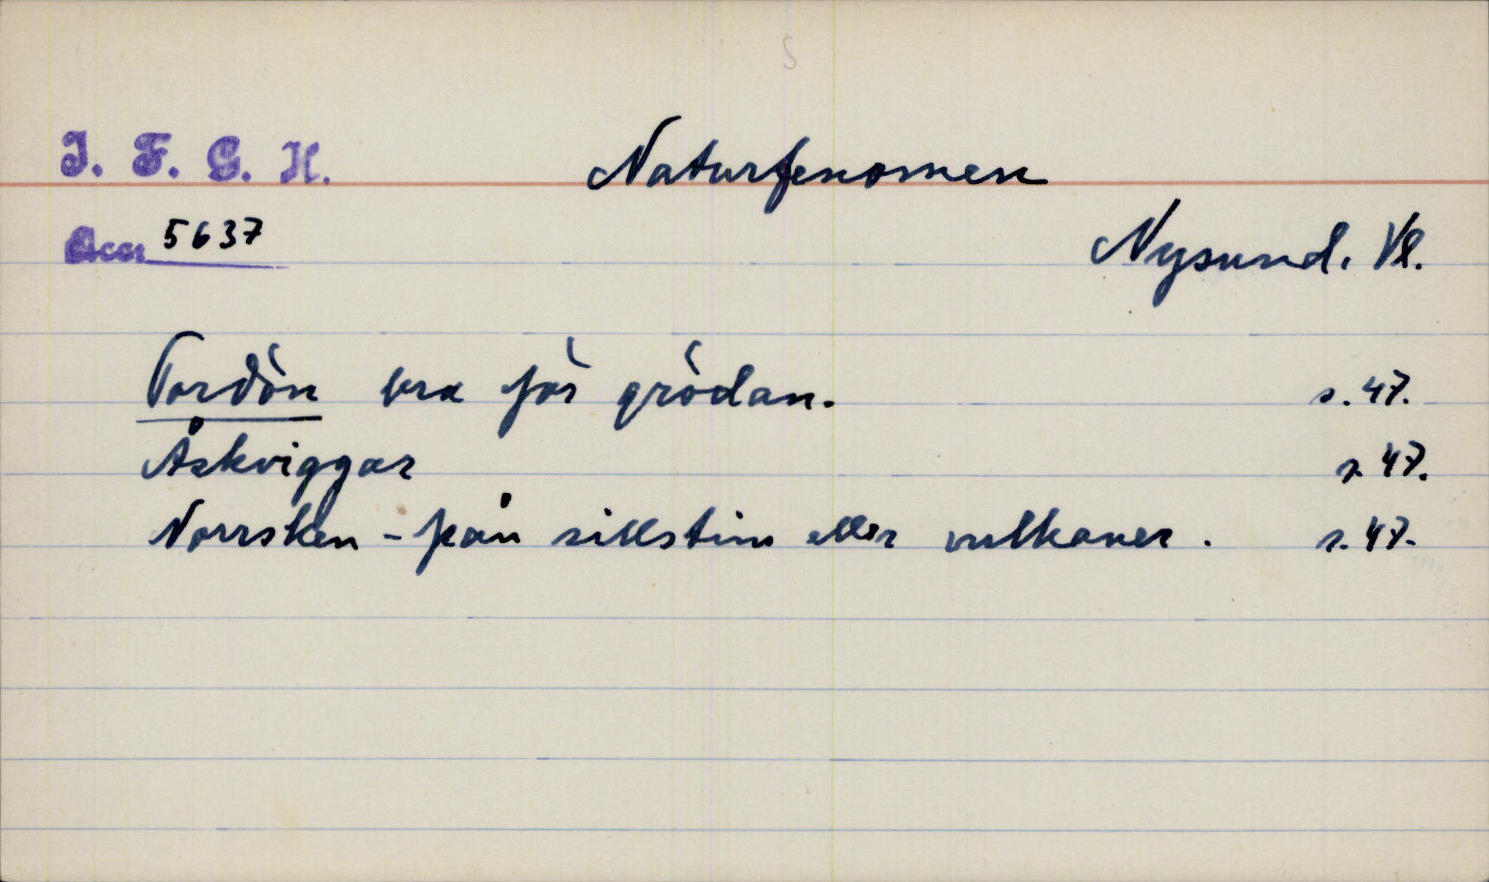 I. F. G. H. Naturfenomen
Acc. 5637
Nysund. Vl.
Tordön bra för grödan. s. 47.
Åskviggar s. 47.
Norrsken - från sillstim eller vulkaner. s. 47.